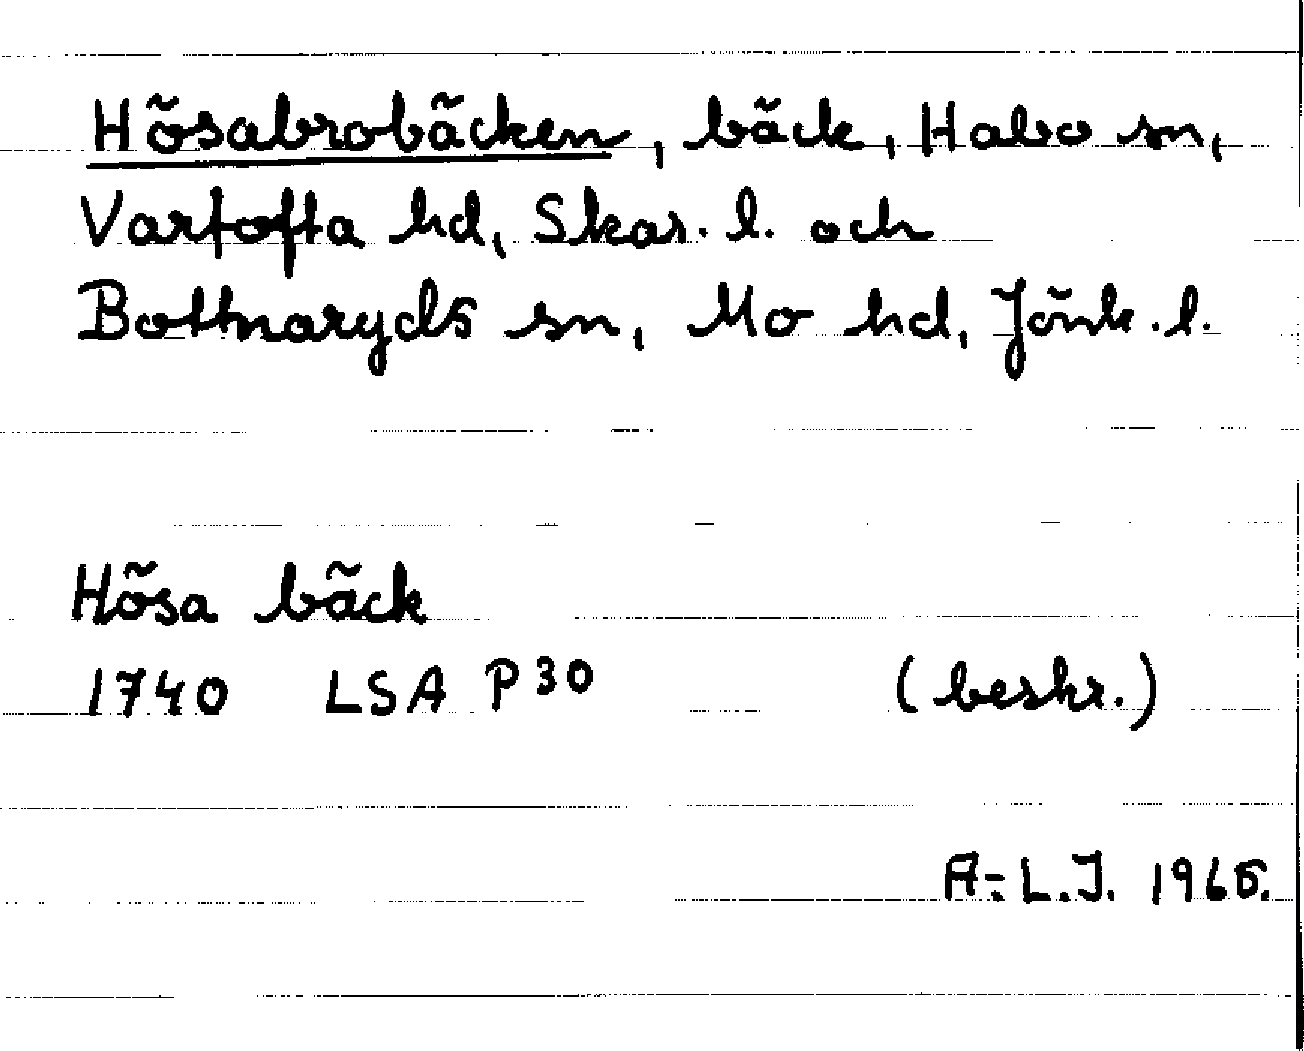 Hösabrobäcken, bäck, Habo sn,
Vartofta hd, Skar. l. och
Bottnaryds sn, Mo hd, Jönk. l.
Hösa bäck
1740 LSA P30 (beskr.)
A-L.J. 1965.